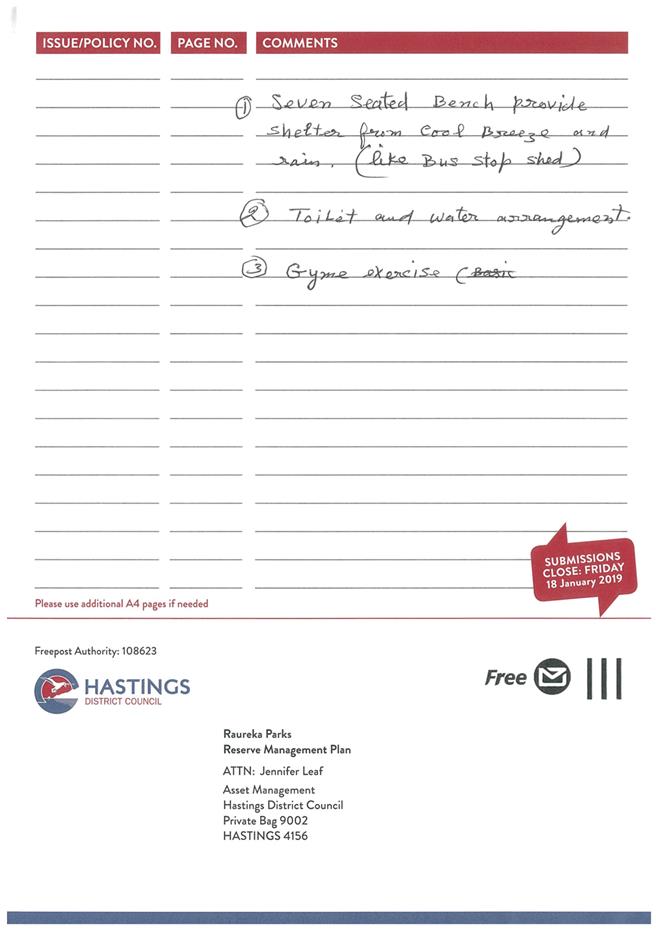 ISSUE/POLICY NO. PAGE NO. COMMENTS
① Seven Seated Bench provide
shelter from Cool Breeze and
rain. (like Bus stop shed)
② Toilet and water arrangement.
③ Gyme exercise (Basic
SUBMISSIONS
CLOSE: FRIDAY
18 January 2019
Please use additional A4 pages if needed
Freepost Authority: 108623
HASTINGS
DISTRICT COUNCIL
Free
Raureka Parks
Reserve Management Plan
ATTN: Jennifer Leaf
Asset Management
Hastings District Council
Private Bag 9002
HASTINGS 4156